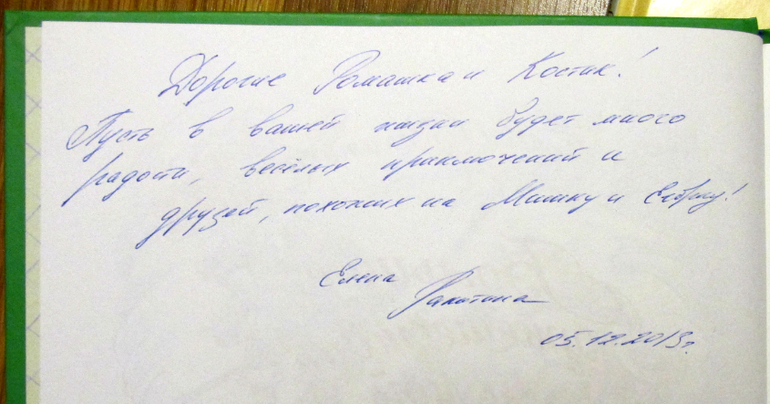 Дорогие Ромашка и Костик!
Пусть в вашей жизни будет много
радости, весёлых приключений и
друзей, похожих на Мишку и Егорку!
Елена
Ракитина
05.12.2013г.